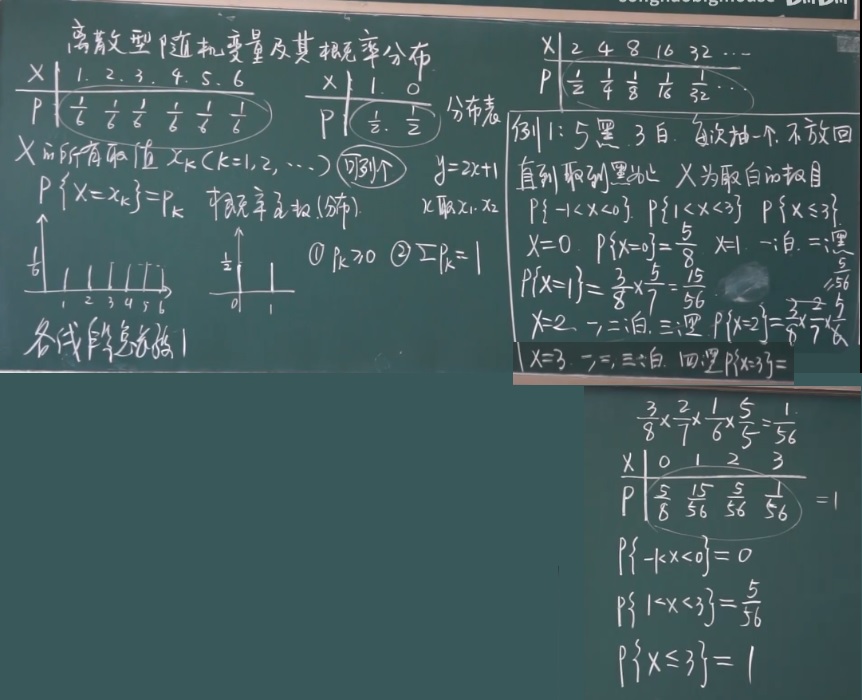 离散型随机变量及其概率分布
X | 1. 2. 3. 4. 5. 6
P | 1/6 1/6 1/6 1/6 1/6 1/6
X | 1. 0
P | 1/2. 1/2
分布表
X的所有取值 xₖ(k=1,2,…) 可列个
P{X=xₖ}=pₖ 概率函数(分布).
y=2x+1
x取x₁.x₂
① pₖ≥0 ② Σpₖ=1
1/6
1 2 3 4 5 6
1/2
0 1
各线段总加为1
X | 2 4 8 16 32 …
P | 1/2 1/4 1/8 1/16 1/32 …
例1: 5黑.3白. 每次抽一个.不放回
直到取到黑为止 X为取白的数目
P{-1<X<0}. P{1<X<3} P{X≤3}
X=0. P{X=0}=5/8 X=1. 一白.二黑
P{X=1}=3/8×5/7=15/56
5/56
X=2. 一,二白.三黑 P{X=2}=3/8×2/7×5/6
X=3. 一,二,三白. 四黑 P{X=3}=
3/8×2/7×1/6×5/5=1/56
X | 0 1 2 3
P | 5/8 15/56 5/56 1/56 =1
P{-1<X<0}=0
P{1<X<3}=5/56
P{X≤3}=1